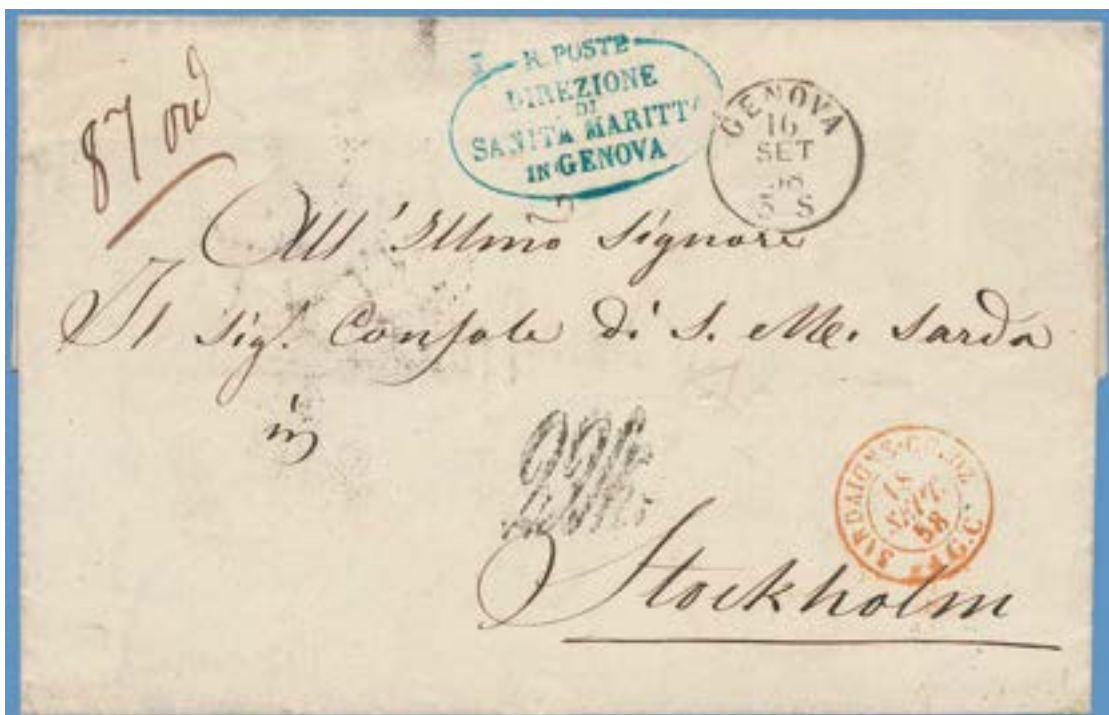 87 ord
R. POSTE
DIREZIONE
DI
SANITÀ MARITTA
IN GENOVA
GENOVA
16
SET
58
5 S
All' Illmo Signore
Il Sig. Console di S. M. Sarda
in
SARDAIGNE
SEPT.
58
Stockholm